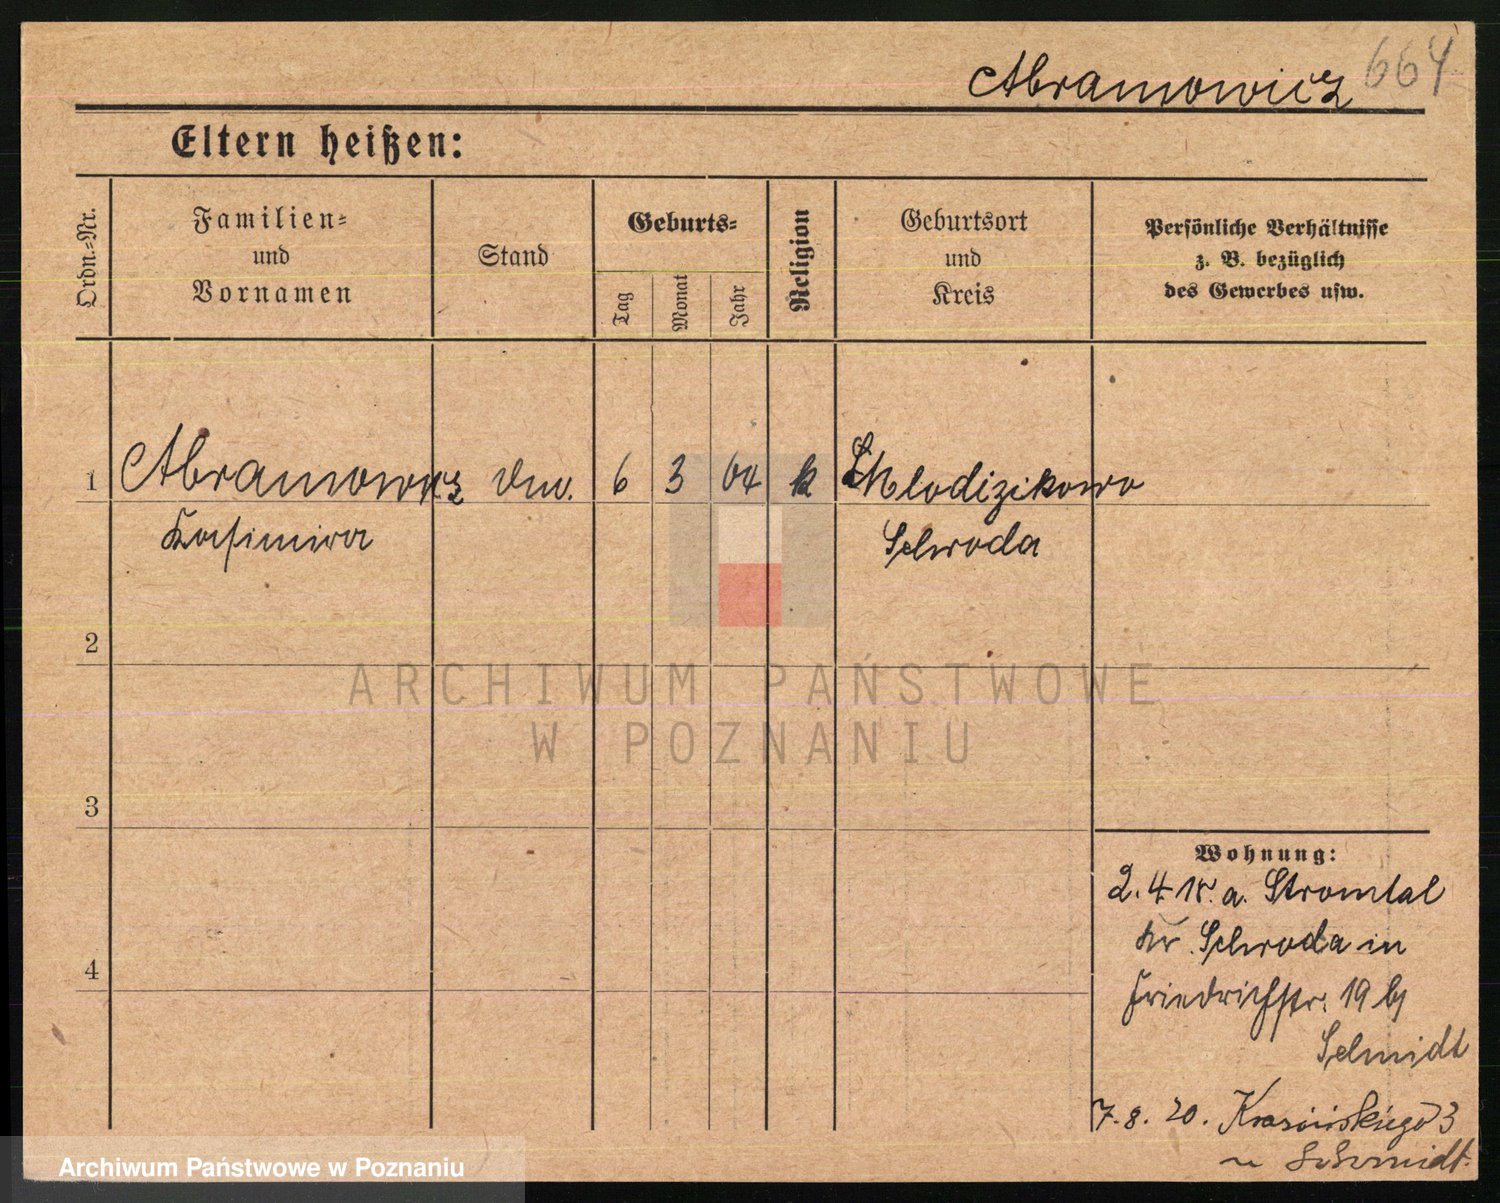 Abramowicz 664
Eltern heißen:
Ordn.-Nr.
Familien-
und
Vornamen
Stand
Geburts-
Tag
Monat
Jahr
Religion
Geburtsort
und
Kreis
Persönliche Verhältnisse
z. B. bezüglich
des Gewerbes usw.
1 Abramowicz 6 3 04 k
Kasimira Schroda
2
3
4
Wohnung:
2. 4. 18. a. Stromtal
Kr. Schroda in
Friedrichstr. 19 b/
Schmidt
7. 8. 20. Krasińskiego 3
u Schmidt.
ARCHIWUM PAŃSTWOWE
W POZNANIU
Archiwum Państwowe w Poznaniu